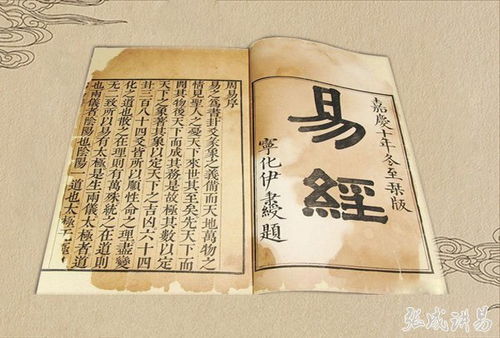 嘉慶十年冬至栞版
易經
寧化伊秉綬題
周易序
易之為書卦爻彖象之義備而天地萬物之
情見聖人之憂天下來世其至矣先天下而
開其物後天下而成其務是故極其數以定
天下之象著其象以定天下之吉凶六十四
卦三百八十四爻皆所以順性命之理盡變
化之道也散之在理則有萬殊統之在道則
无二致所以易有太極是生兩儀太極者道
也兩儀者陰陽也陰陽一道也太極无極
张成讲易